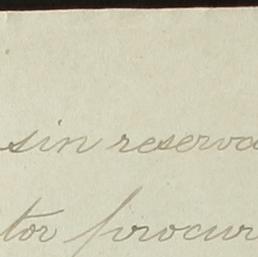 sin reserva
tor procur